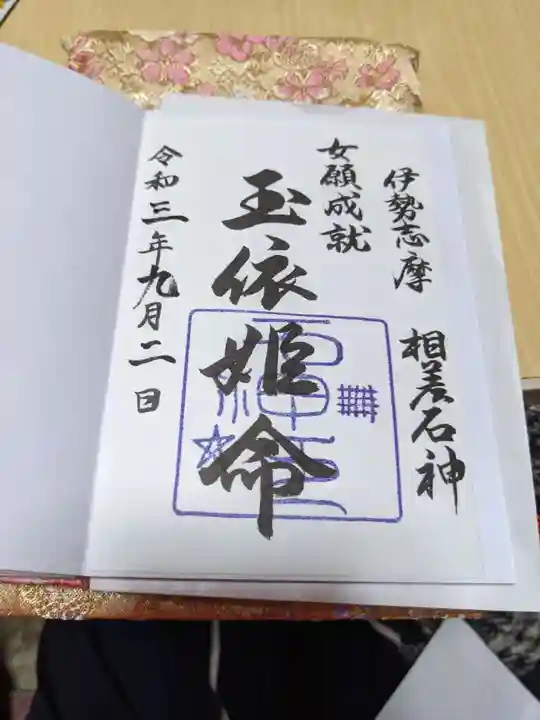 伊勢志摩 相差石神
女願成就
玉依姫命
令和三年九月二日